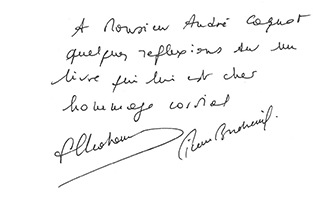 A Monsieur André Caquot
quelques reflexions sur un
livre qui lui est cher
hommage cordial
Pierre Bordreuil